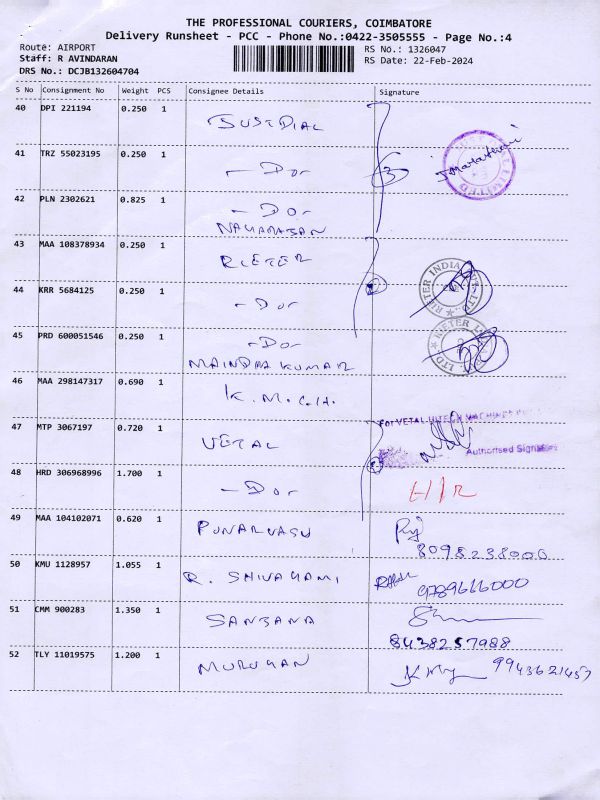 THE PROFESSIONAL COURIERS, COIMBATORE
Delivery Runsheet - PCC - Phone No.:0422-3505555 - Page No.:4
Route: AIRPORT
RS No.: 1326047
Staff: R AVINDARAN
RS Date: 22-Feb-2024
DRS No.: DCJB132604704
S No Consignment No Weight PCS Consignee Details Signature
40 DPI 221194 0.250 1 JUSTDIAL
41 TRZ 55023195 0.250 1 - Do -
42 PLN 2302621 0.825 1 - Do -
NAGARAJAN
43 MAA 108378934 0.250 1 RIETER
44 KRR 5684125 0.250 1 - Do -
RIETER INDIA PVT. LTD.
45 PRD 600051546 0.250 1 - Do -
MAINDRA KUMAR
46 MAA 298147317 0.690 1 K.M.C.H.
For VETAL HITECH MACHINES
47 MTP 3067197 0.720 1 VETAL
Authorised Signa
48 HRD 306968996 1.700 1 - Do - H/R
49 MAA 104102071 0.620 1 PUNARVASU
8098238000
50 KMU 1128957 1.055 1 R. SHIVAGAMI
9789616000
51 CMM 900283 1.350 1 SANJANA
8438257988
52 TLY 11019575 1.200 1 MURUGAN 9943621457